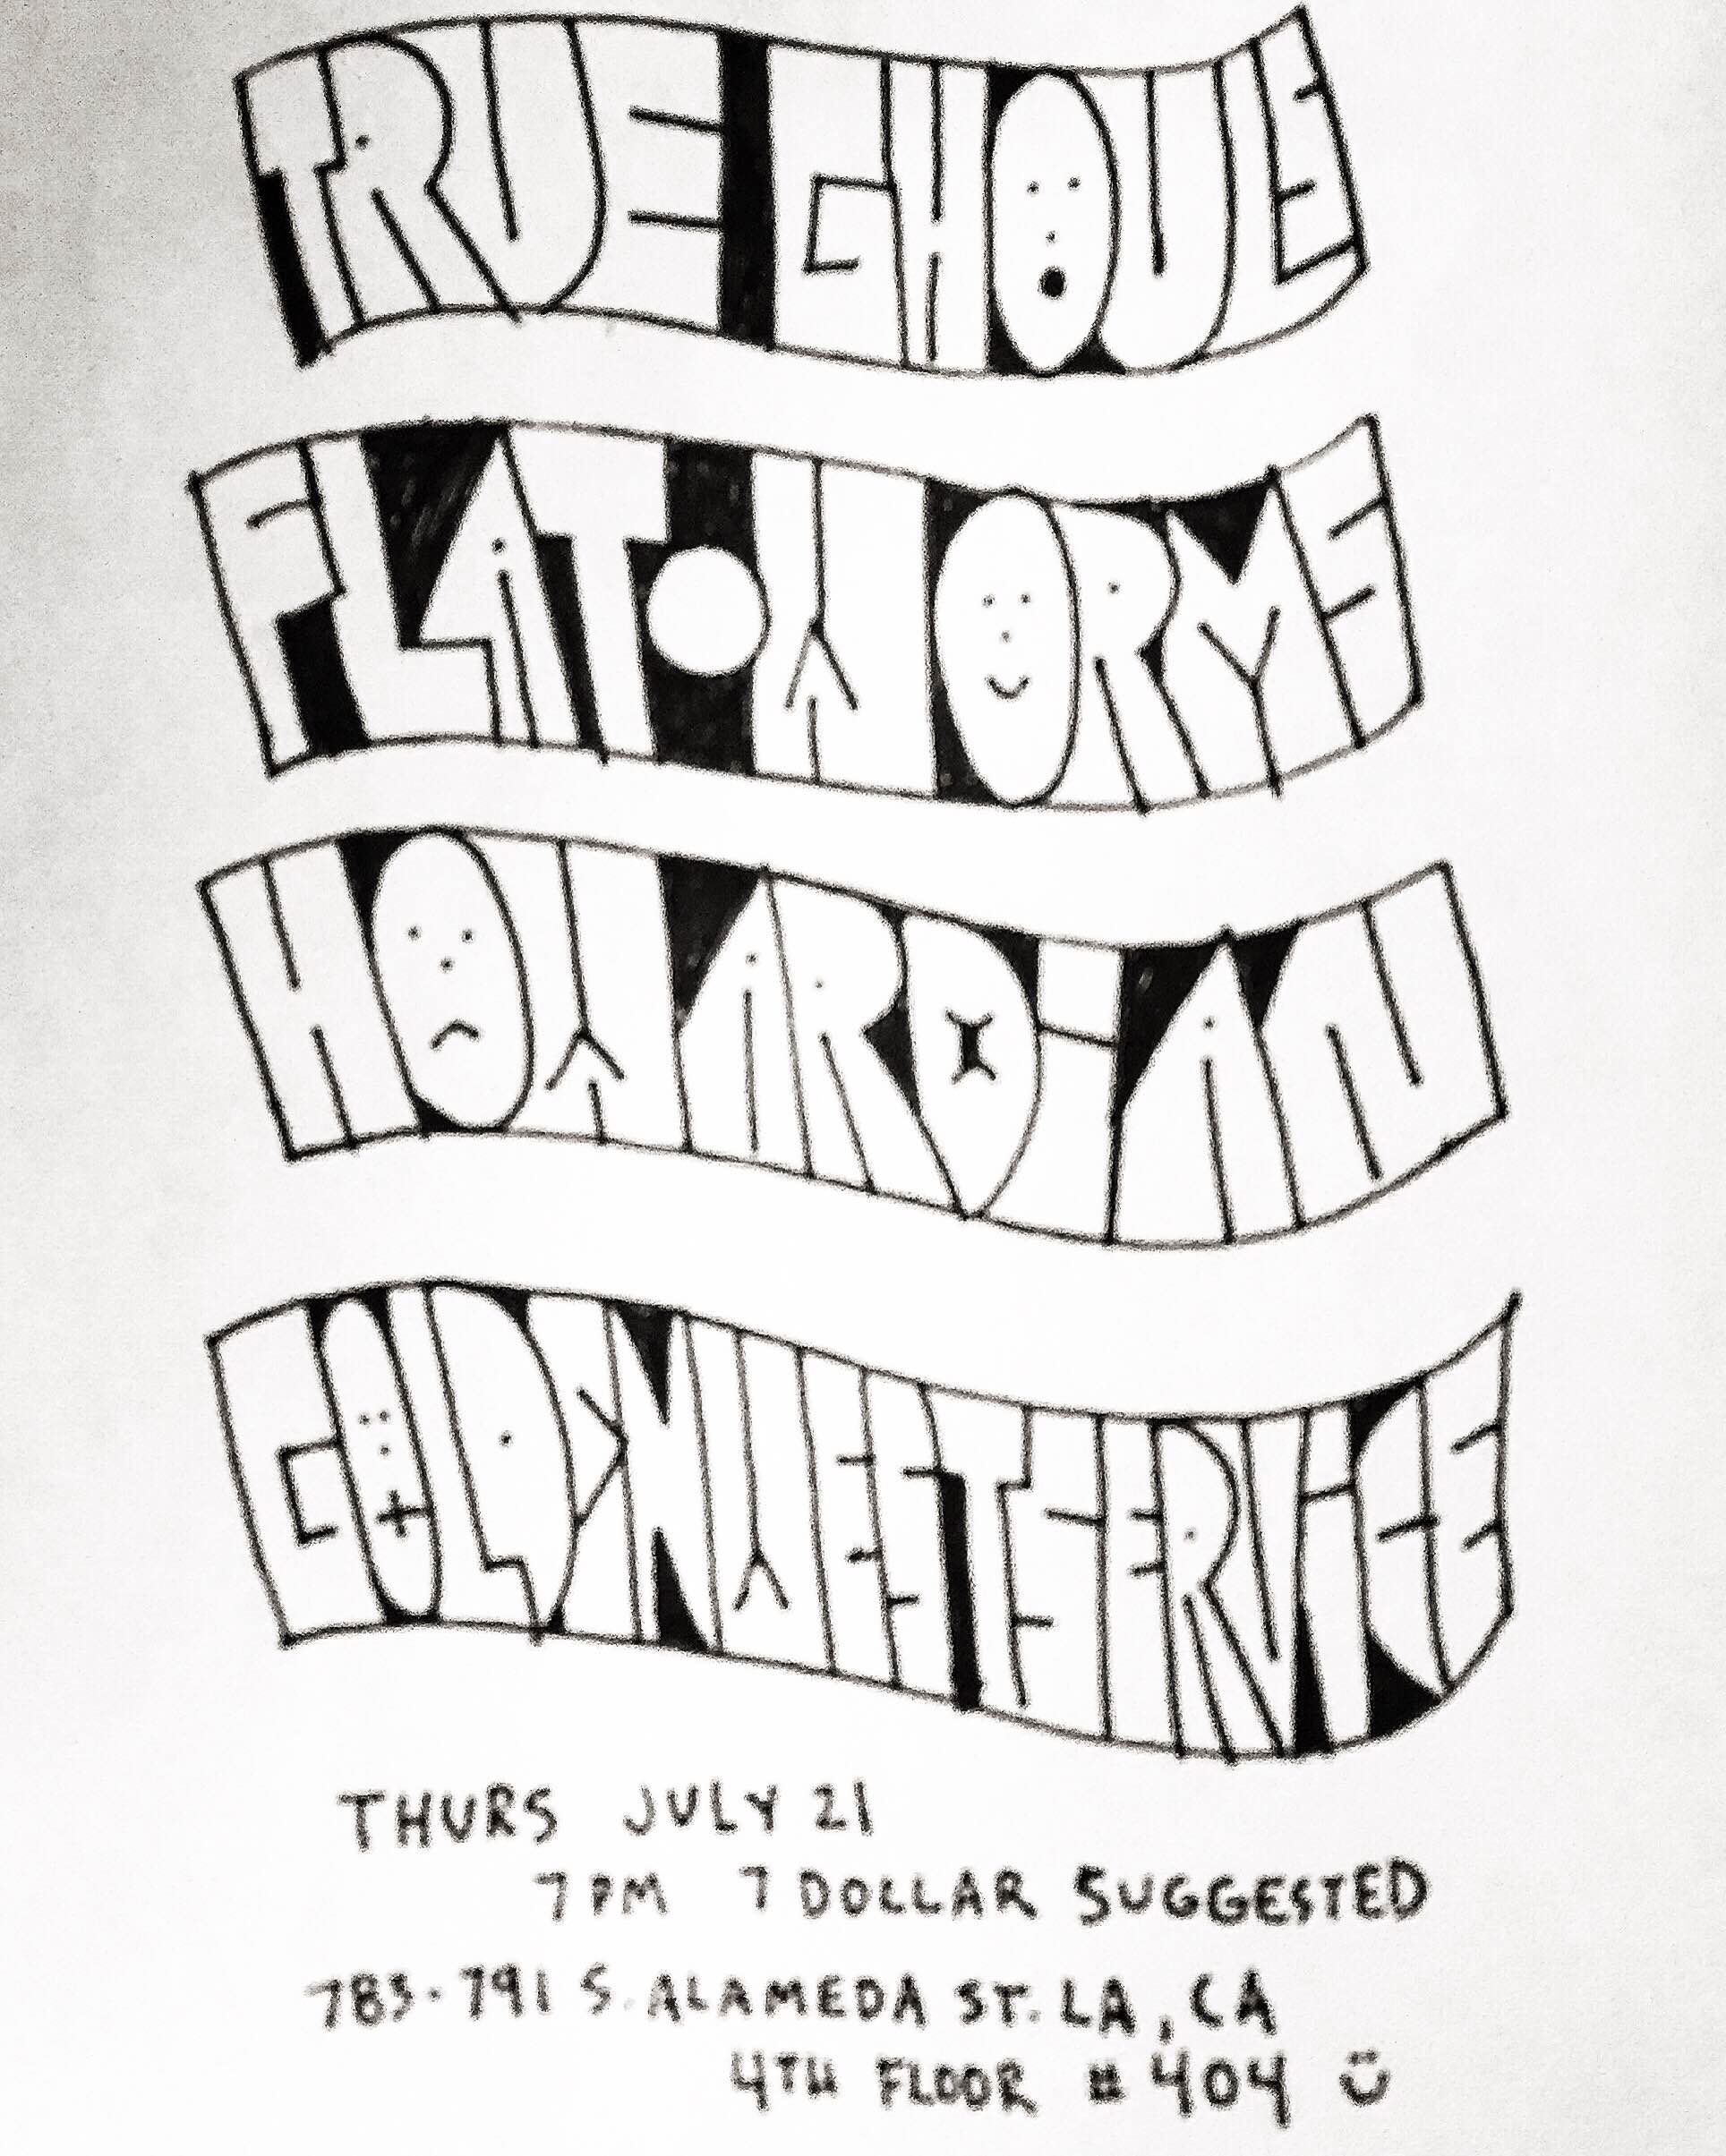 TRUE GHOULS
FLAT·WORMS
HOWARDIAN
GOLDEN WEST SERVICE
THURS JULY 21
7PM 7 DOLLAR SUGGESTED
783-791 S. ALAMEDA ST. LA, CA
4TH FLOOR #404